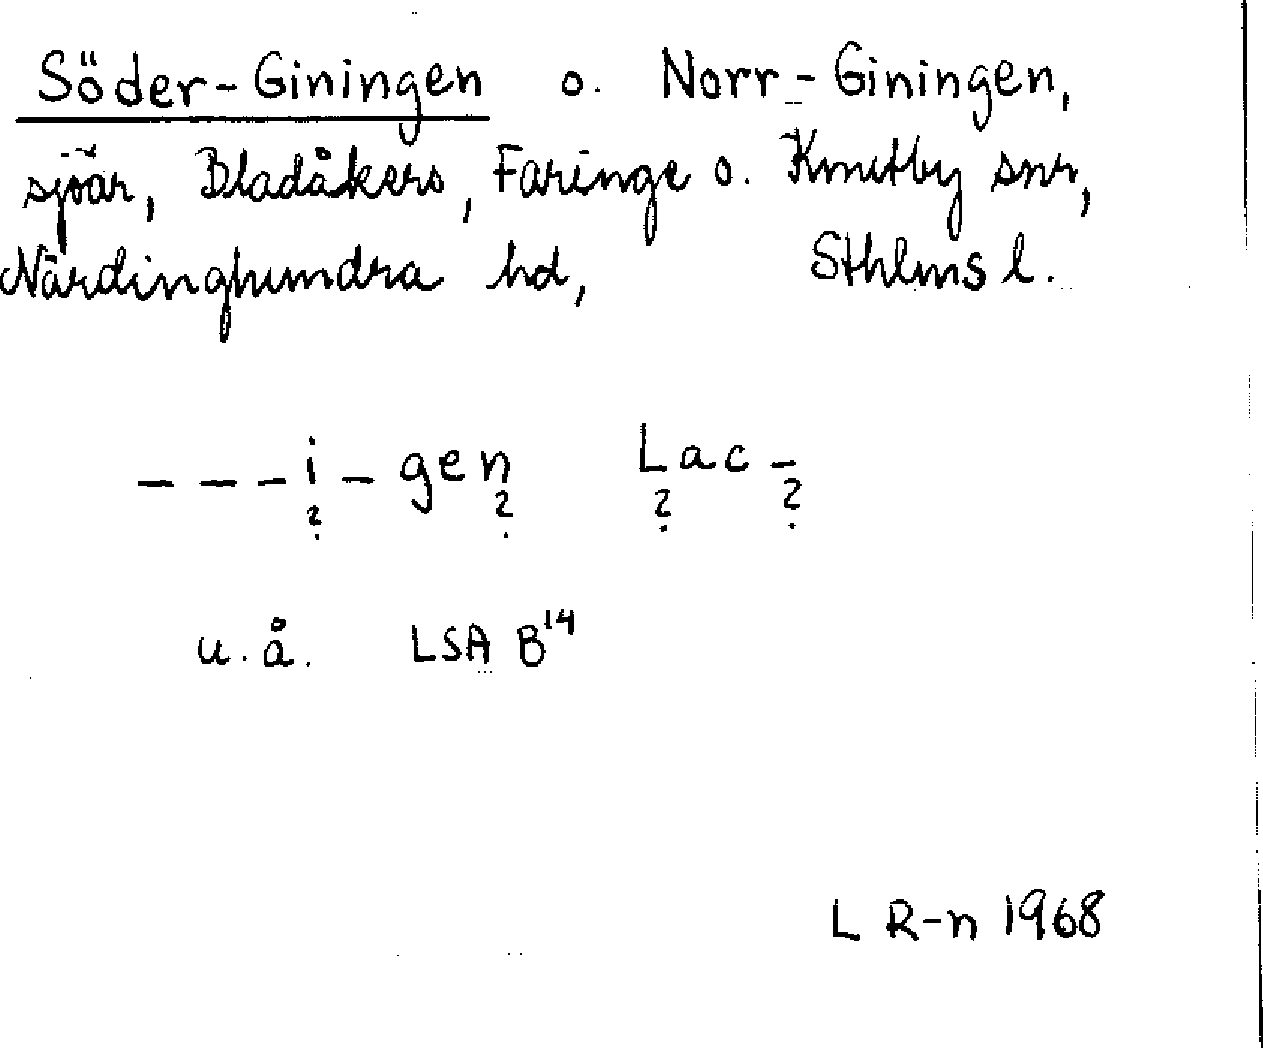 Söder-Giningen o. Norr-Giningen,
sjöar, Bladåkers, Faringe o. Knutby snr,
Närdinghundra hd, Sthlms l.
- - - i - gen Lac -
? ? ? ?
u. å. LSA B14
L R-n 1968